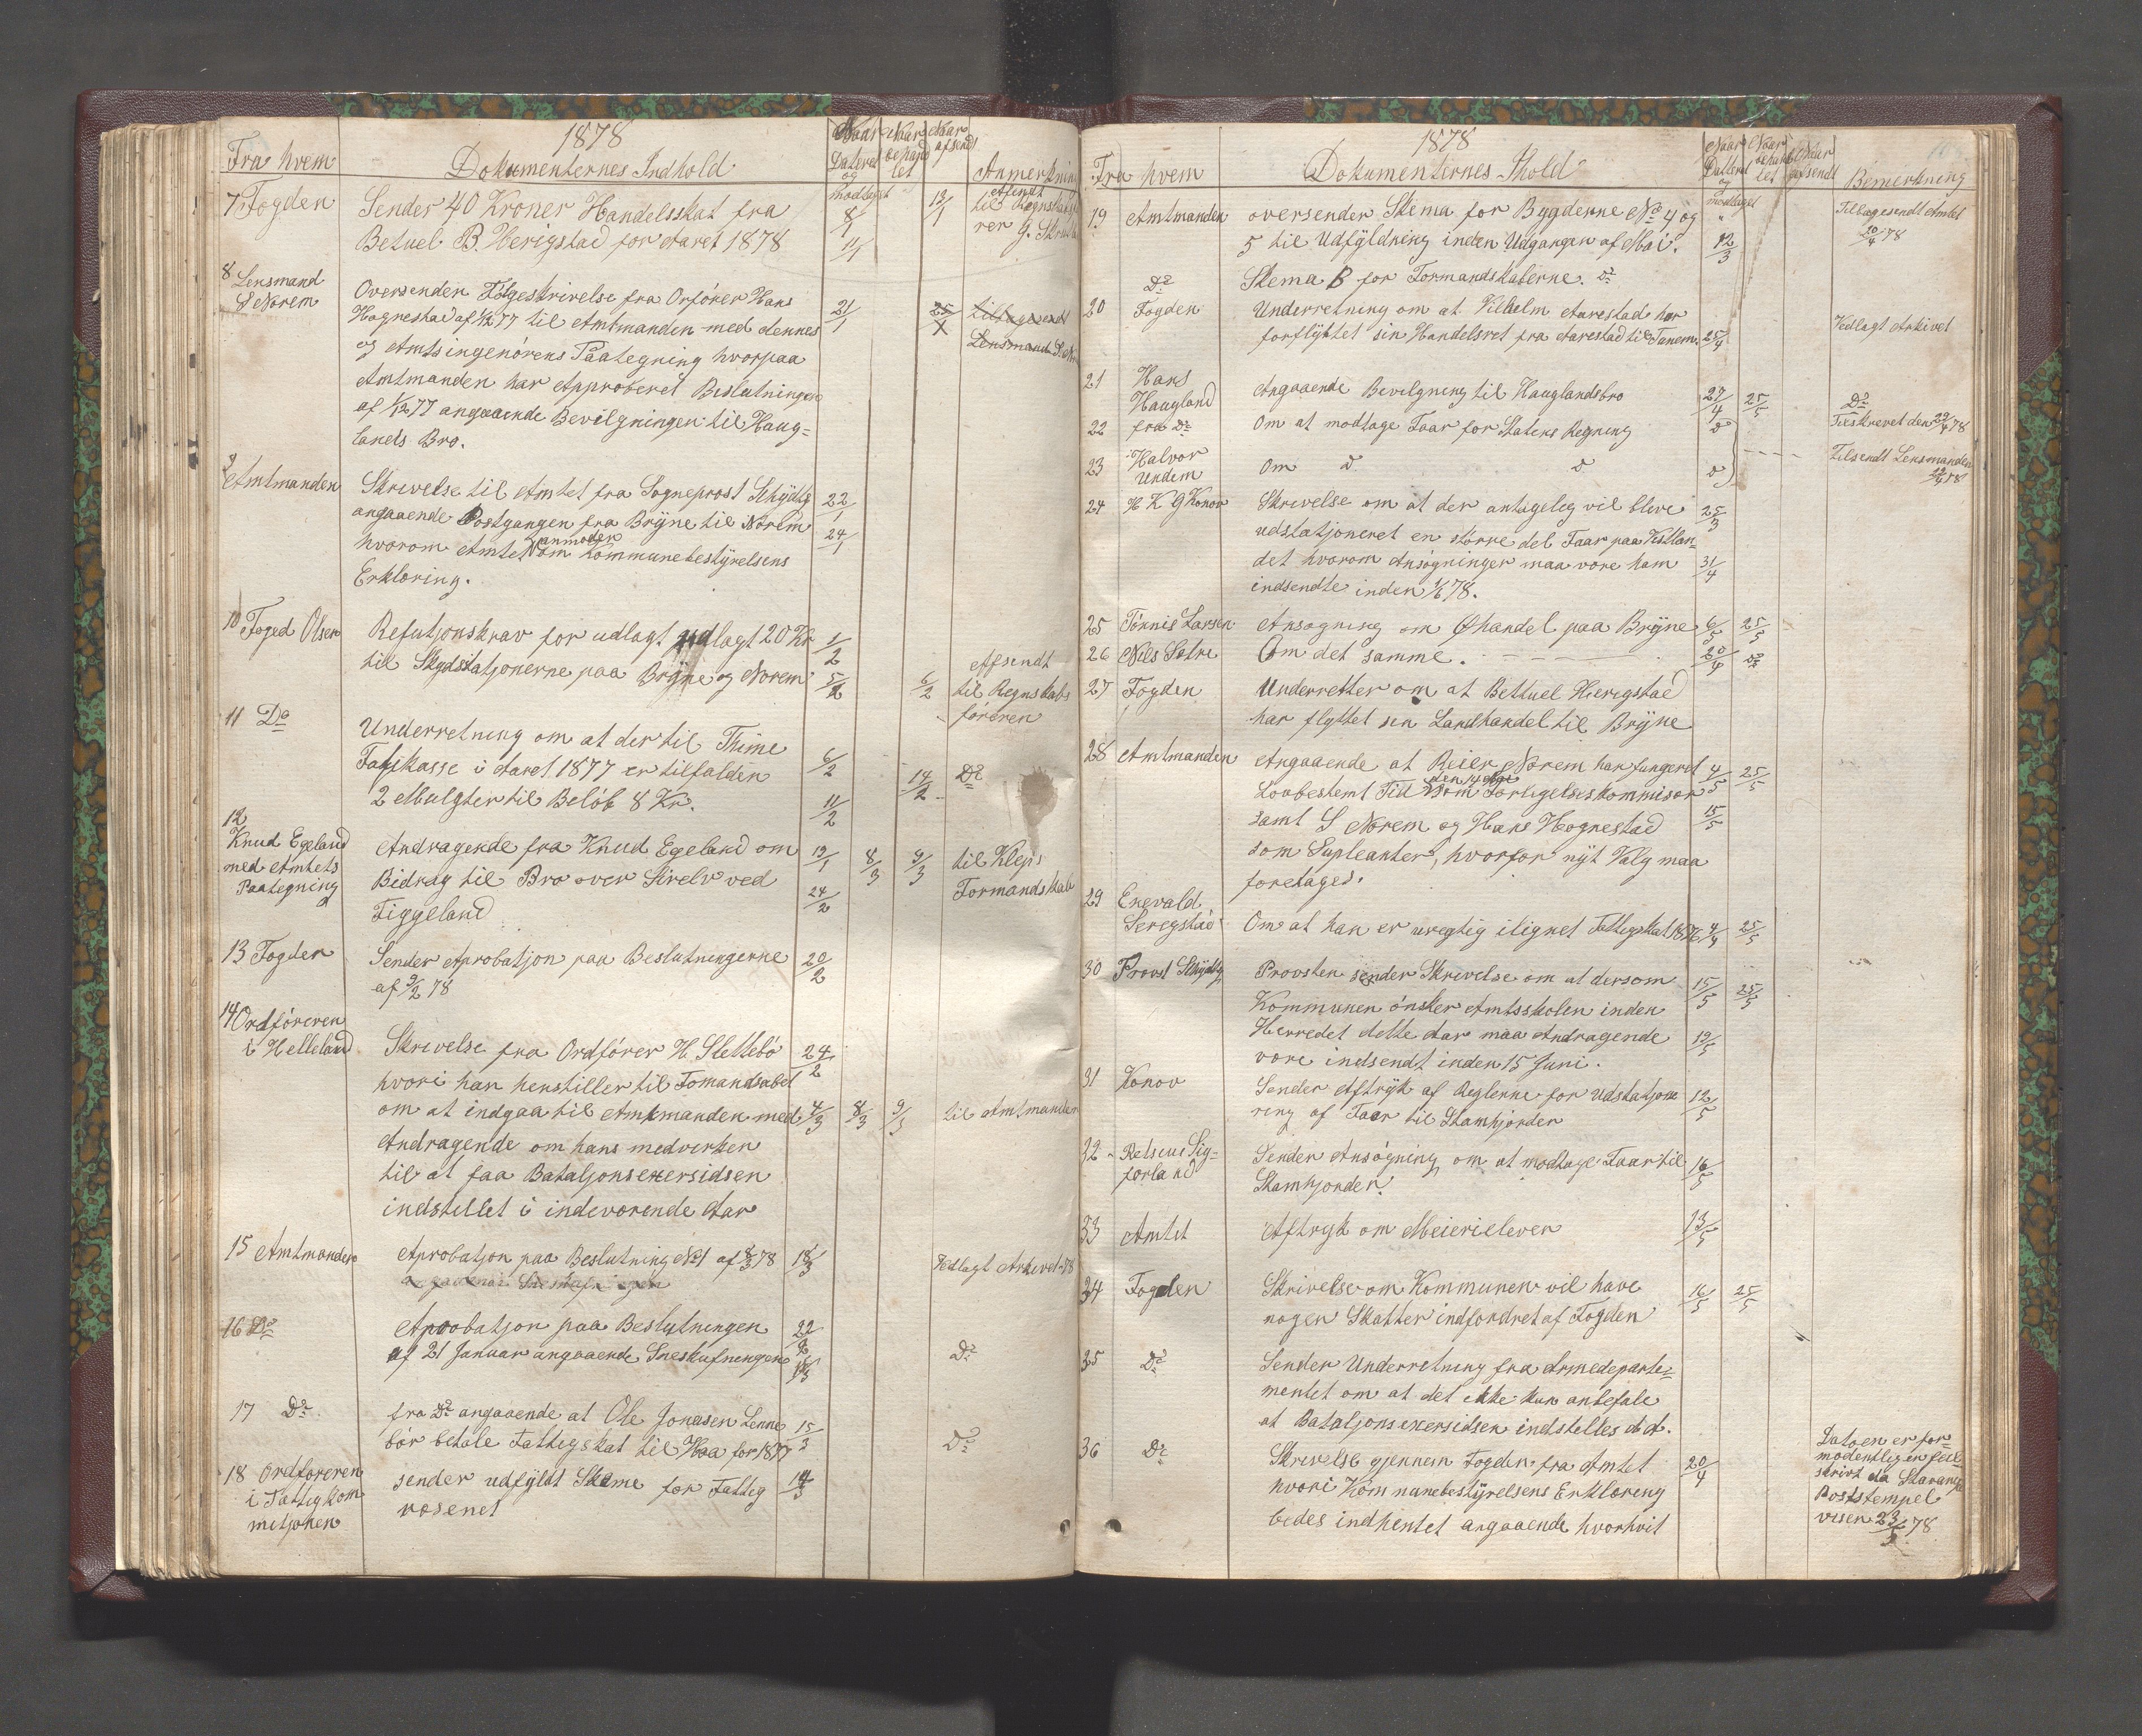 1878
Fra hvem
Dokumenternes Indhold
Naar Dateret og modtaget
Naar behandlet
Naar afsendt
Anmerkning
7 Fogden Sender 40 Kroner Handelsskat fra 8/1 13/1 Afsendt til Regnskabsfø
Betuel B Herigstad for Aaret 1878 11/1 rer G.
8 Lensmand
S Norem Oversender Følgeskrivelse fra Orfører Hans 21/1 25/1 tilbagesendt
Hognestad af 1/12 77 til Amtmanden med dennes Lensmand S. No
og Amtsingenørens Paategning hvorpaa
Amtmanden har Approberet Beslutningen
af 1/12 77 angaaende Bevilgningen til Haug=
lands Bro.
9 Amtmanden Skrivelse til Amtet fra Sogneprost Schydtz 22/1
angaaende Postgangen fra Bryne til Norem 24/1
hvorom Amtet anmoder om Kommunebestyrelsens
Erkløring.
10 Foged Olsen Refutjonskrav for udlagt udlagt 20 Kr 1/2
til Skydsstatjonerne paa Bryne og Norem 5/2 6/2 Afsendt til Regnskabs
føreren
11 Do Underretning om at der til Thime
Fatikasse i Aaret 1877 er tilfalden 6/2 14/2 Do
2 Mulgter til Beløb 8 Kr. 11/2
12
Knud Egeland Andragende fra Knud Egeland om 19/1 8/3 9/3 til Kleps
med Amtets Bidrag til Bro over Sirelv ved 24/2 Formandskab
Paategning Figgeland
13 Fogden Sender Aprobatjon paa Beslutningerne 20/2
af 9/2 78
14 Ordføreren
i Helleland Skrivelse fra Ordfører H. Slettebø 24/2
hvori han henstiller til Fomandsabet
om at indgaa til Amtmanden med 4/3 8/3 9/3 til Amtmanden
Andragende om hans medvirken
til at faa Bataljonsexersidsen
indstillet i indeværende Aar
15 Amtmanden Aprobatjon paa Beslutning No 1 af 8/3 78 18/3 Vedlagt Arkivet 78
16 Do Aprobatjon paa Beslutningen 22/2
af 21 Januar angaaende Sneskufningen 18/3 Do
17 Do fra Do angaaende at Ole Jonasen Lenne 15/3
bør betale Fattigskat til Haa for 1877 Do
18 Ordføreren sender udfyldt Skeme for Fattig 14/3
i Fattigkom væsenet
mitjonen
1878
Fra hvem
Dokumenternes Ihold
Naar Dateret og modtaget
Naar behandlet
Naar afsendt
Bemerkning
19 Amtmanden oversender Skema for Bygderne No 4 og " Tilbagesendt Amtet
5 til Udfyldning inden Udgangen af Mai. 12/3 20/4 78
Do Skema B for Formandskaberne. Do
20 Fogden Underretning om at Vilhelm Aarestad har
forflyttet sin Handelsret fra Aarestad til Tunem. 25/4 Vedlagt Arkivet
21 Hans
Haugland Angaaende Bevilgning til Hauglandsbro 27/4 25/5 Do
22 fra Do Om at modtage Faar for Statens Regning Do Tilskrevet den 29/4 78
23 Halvor
Undem Om Do Do Do Tilsendt Lensmanden
29/4 78
24 H K G Konov Skrivelse om at der antageleg vil blive 25/3
udstatjoneret en større del Faar paa Vestlan-
det hvorom Ansøgninger maa være ham 31/4
indsendte inden 1/6 78.
25 Tønnis Larsen Ansøgning om Øhandel paa Bryne 6/5 25/5
26 Nils Sætre Om det samme. 20/4 Do
27 Fogden Underretter om at Bethuel Herigstad
har flyttet sin Landhandel til Bryne
28 Amtmanden Angaaende at Reier Norem har fungeret 4/5 25/5
Lovbestemt Tid som Forligelseskommisær 15/5
samt S Norem og Hans Hognestad
som Supleanter, hvorfor nyt Valg maa
foretages.
29 Enevald
Seregstad Om at han er urægtig ilignet Fattigskat 1876 4/4 25/5
30 Provst Schydtz Provsten sender Skrivelse om at dersom 15/5 25/5
Kommunen ønsker Amtsskolen inden
Herredet dette Aar maa Andragende 19/5
være indsendt inden 15 Juni.
31 Konov Sender Aftryk af Reglerne for Udstatjone 12/5
ring af Faar til Stamhjorden
32 Retsius Sig= Sender Ansøgning om at modtage Faar til 16/5
forland Stamhjorden.
33 Amtet Aftryk om Meierielever 13/5
34 Fogden Skrivelse om Kommunen vil have 16/5 25/5
nogen Skatter indfordret af Fogden
35 Do Sender Underretning fra Armedeparte=
mentet om at det ikke kan anbefale
at Bataljonsexersidsen indstilles d. A.
36 Do Skrivelse gjennem Fogden fra Amtet 20/4
hvori Kommunebestyrelsens Erkløreng
bedes indhentet angaaende hvorhvit
Datoen er for=
modentligen feil
skrivt da Stavanger
Poststempel
viser 23/5 78